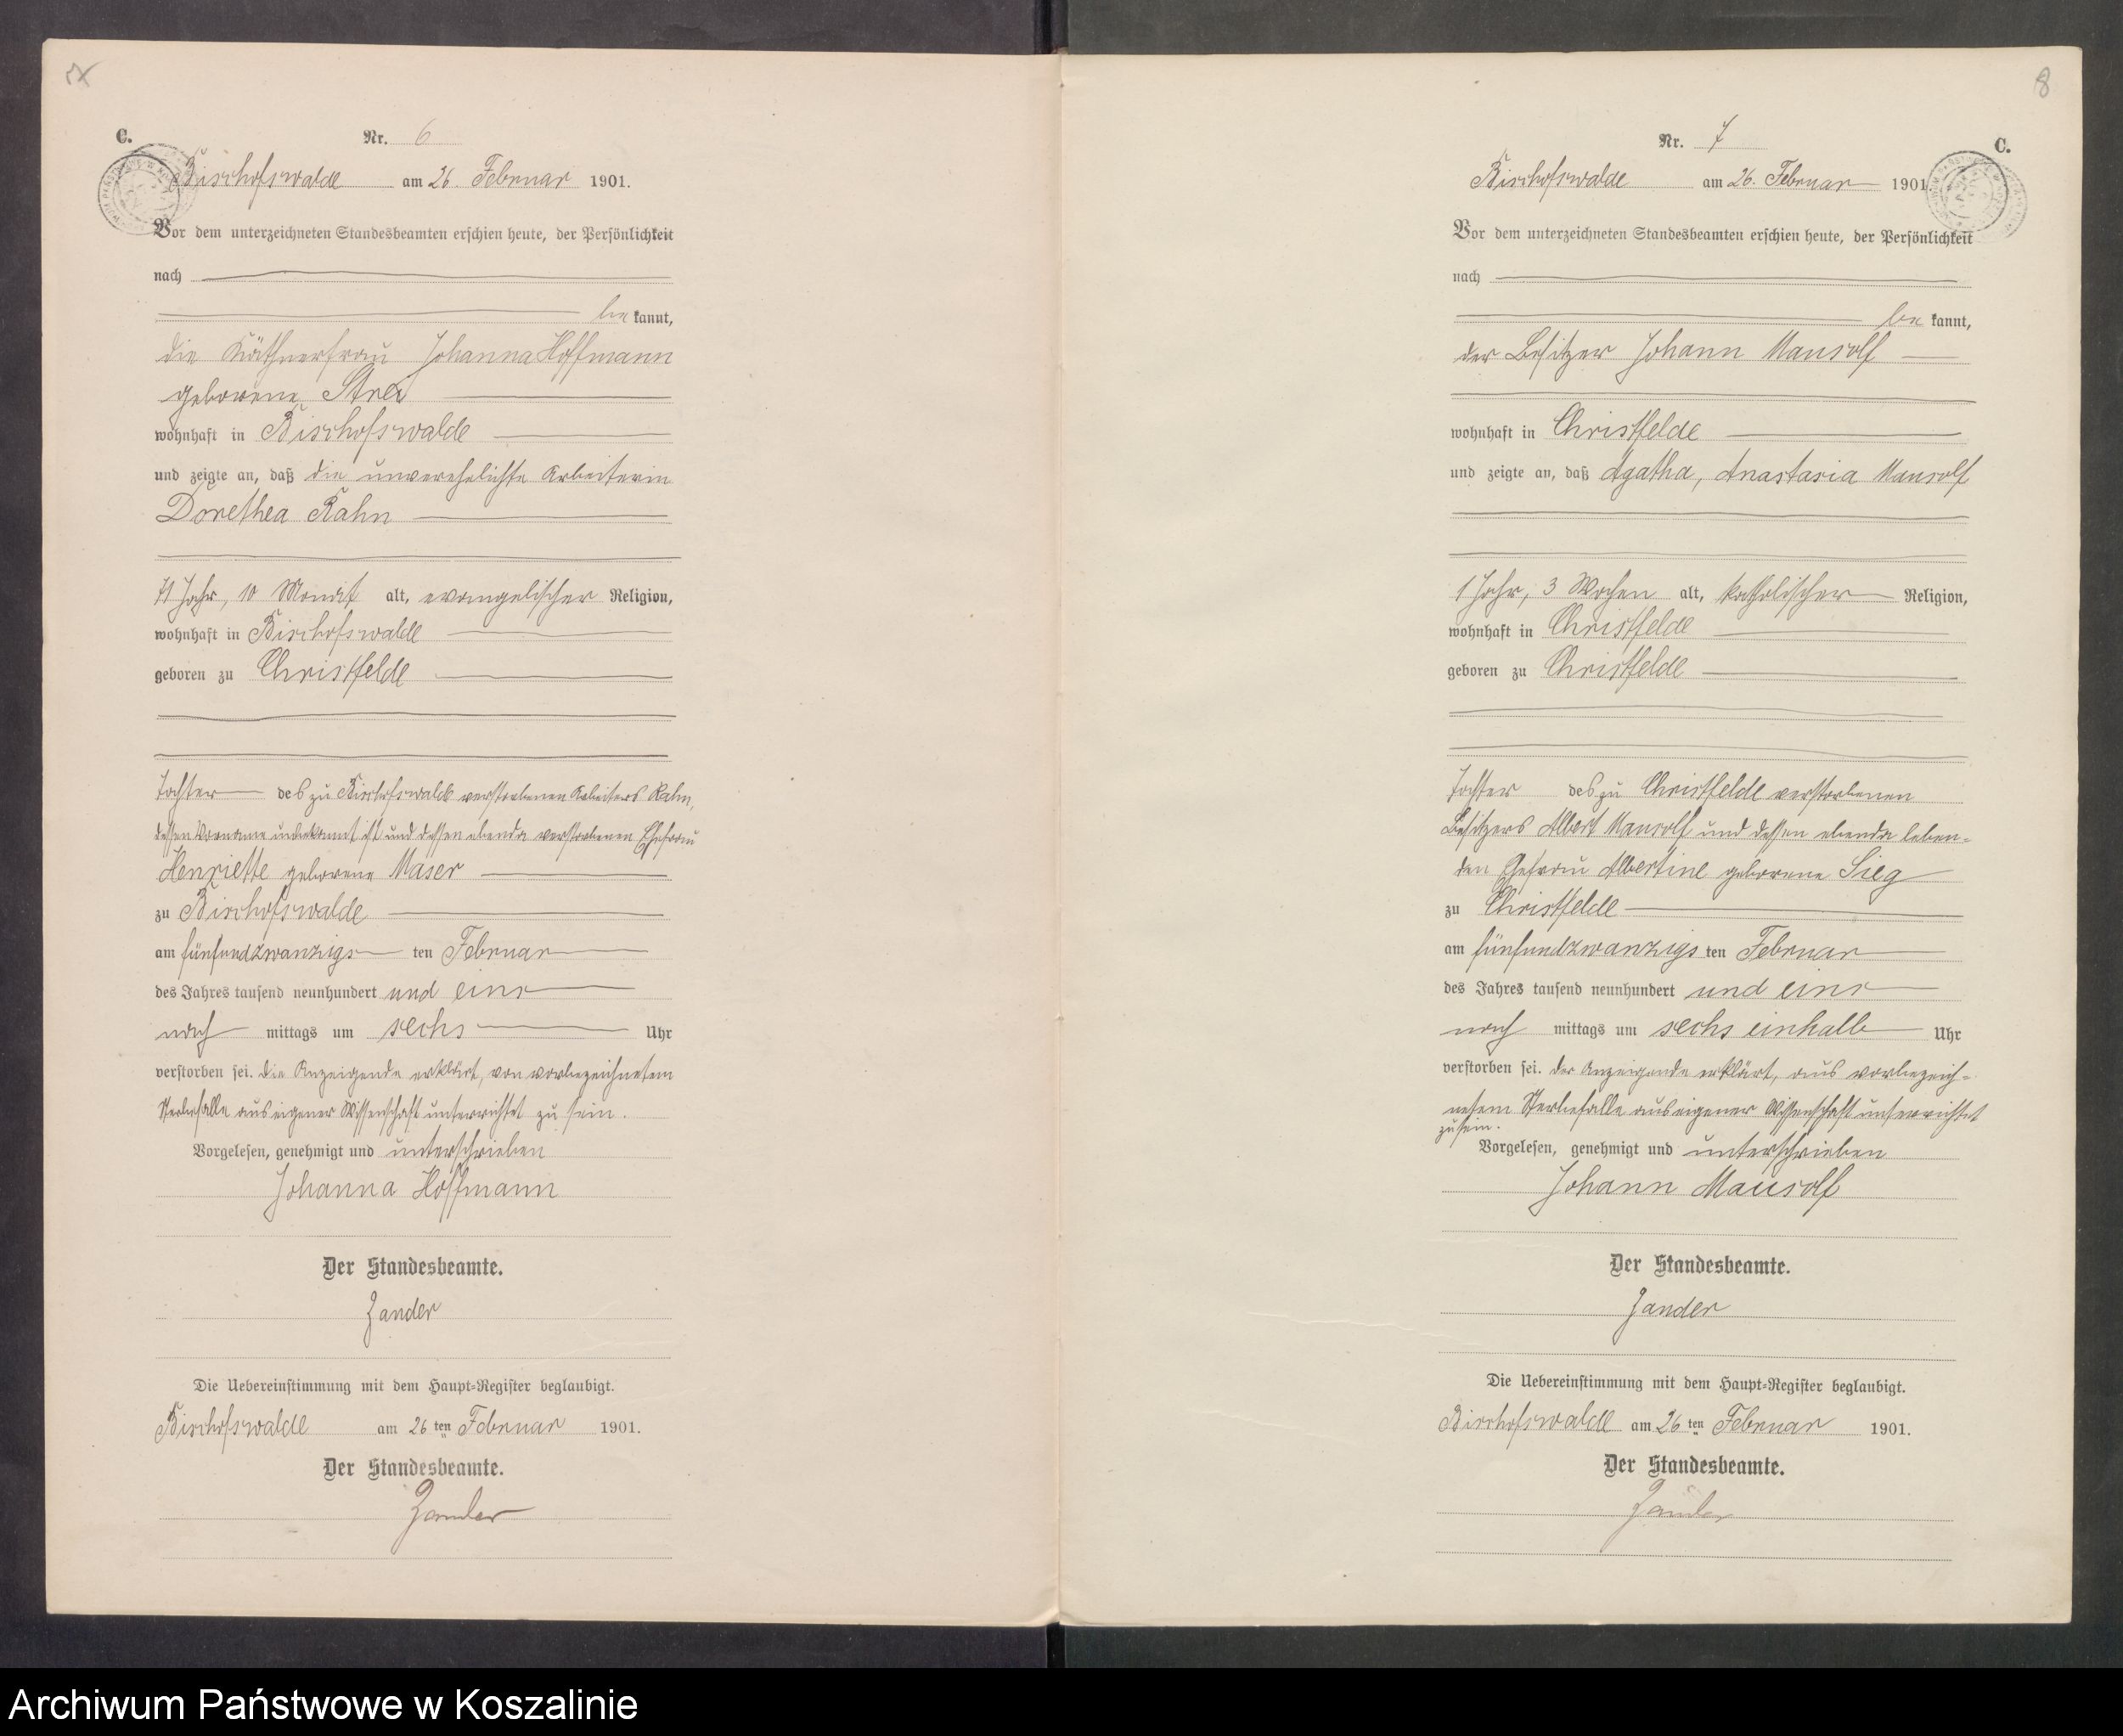 C.
Nr. 6
Bischofswalde am 26. Februar 1901.
Vor dem unterzeichneten Standesbeamten erschien heute, der Persönlichkeit
nach
be kannt,
die Käthnerfrau Johanna Hoffmann
geborene
wohnhaft in Bischofswalde
und zeigte an, daß die unverehelichte Arbeiterin
Dorethea Kahn
71 Jahr, 10 Monat alt, evangelischer Religion,
wohnhaft in Bischofswalde
geboren zu Christfelde
Tochter des zu Bischofswalde verstorbenen Arbeiters Kahn,
dessen Vorname unbekannt ist und dessen ebenda verstorbenen Ehefrau
Henriette geborene Maser
zu Bischofswalde
am fünfundzwanzigs ten Februar
des Jahres tausend neunhundert und eins
nach mittags um sechs Uhr
verstorben sei. Die Anzeigende erklärt, von vorbezeichnetem
Sterbefalle aus eigener Wissenschaft unterrichtet zu sein.
Vorgelesen, genehmigt und unterschrieben
Johanna Hoffmann
Der Standesbeamte.
Zander
Die Uebereinstimmung mit dem Haupt-Register beglaubigt.
Bischofswalde am 26 ten Februar 1901.
Der Standesbeamte.
Zander
8
Nr. 7
C.
Bischofswalde am 26. Februar 1901
Vor dem unterzeichneten Standesbeamten erschien heute, der Persönlichkeit
nach
be kannt,
der Besitzer Johann Mausolf
wohnhaft in Christfelde
und zeigte an, daß Agatha, Anastasia Mausolf
1 Jahr, 3 Wochen alt, katholischer Religion,
wohnhaft in Christfelde
geboren zu Christfelde
Tochter des zu Christfelde verstorbenen
Besitzers Albert Mausolf und dessen ebenda leben-
den Ehefrau Albertine geborene Sieg
zu Christfelde
am fünfundzwanzigs ten Februar
des Jahres tausend neunhundert und eins
nach mittags um sechs einhalb Uhr
verstorben sei. Der Anzeigende erklärt, aus vorbezeich-
netem Sterbefalle aus eigener Wissenschaft unterrichtet
zu sein.
Vorgelesen, genehmigt und unterschrieben
Johann Mausolf
Der Standesbeamte.
Zander
Die Uebereinstimmung mit dem Haupt-Register beglaubigt.
Bischofswalde am 26 ten Februar 1901.
Der Standesbeamte.
Zander
Archiwum Państwowe w Koszalinie